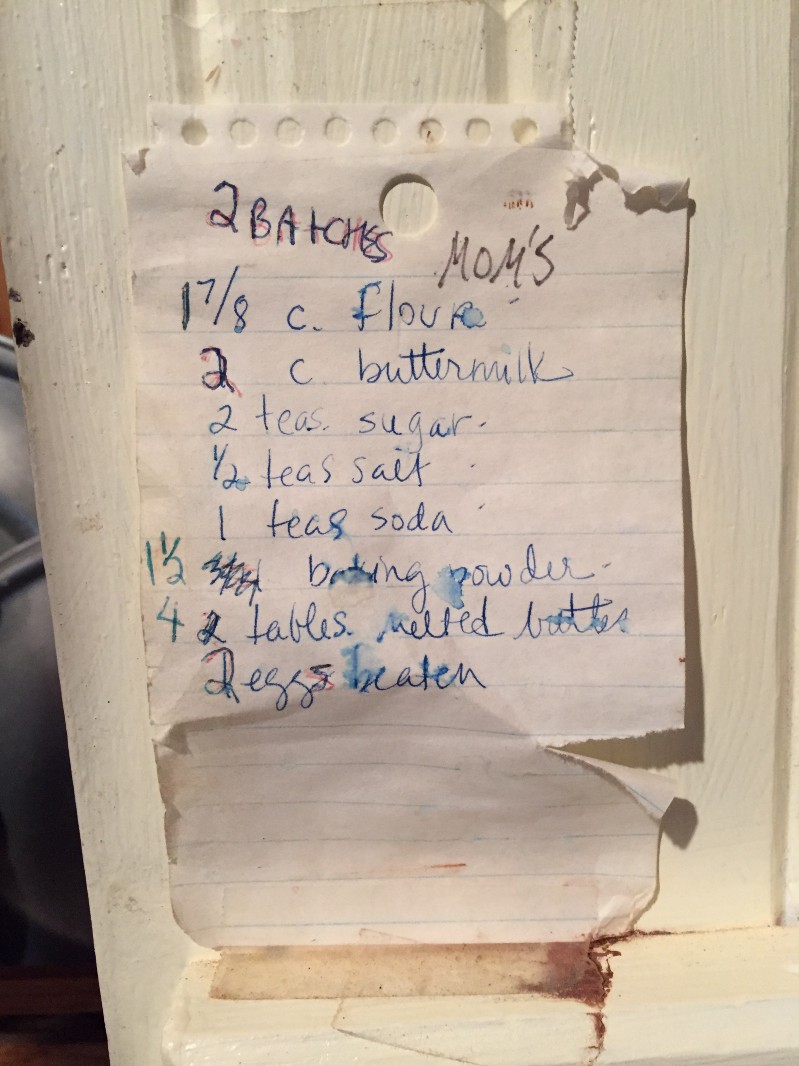 2 BATCHES
MOM'S
1 7/8 c. flour
2 c buttermilk
2 teas. sugar.
1/2 teas salt
1 teas soda
1 1/2 baking powder.
4 tables. melted butter
2 eggs beaten